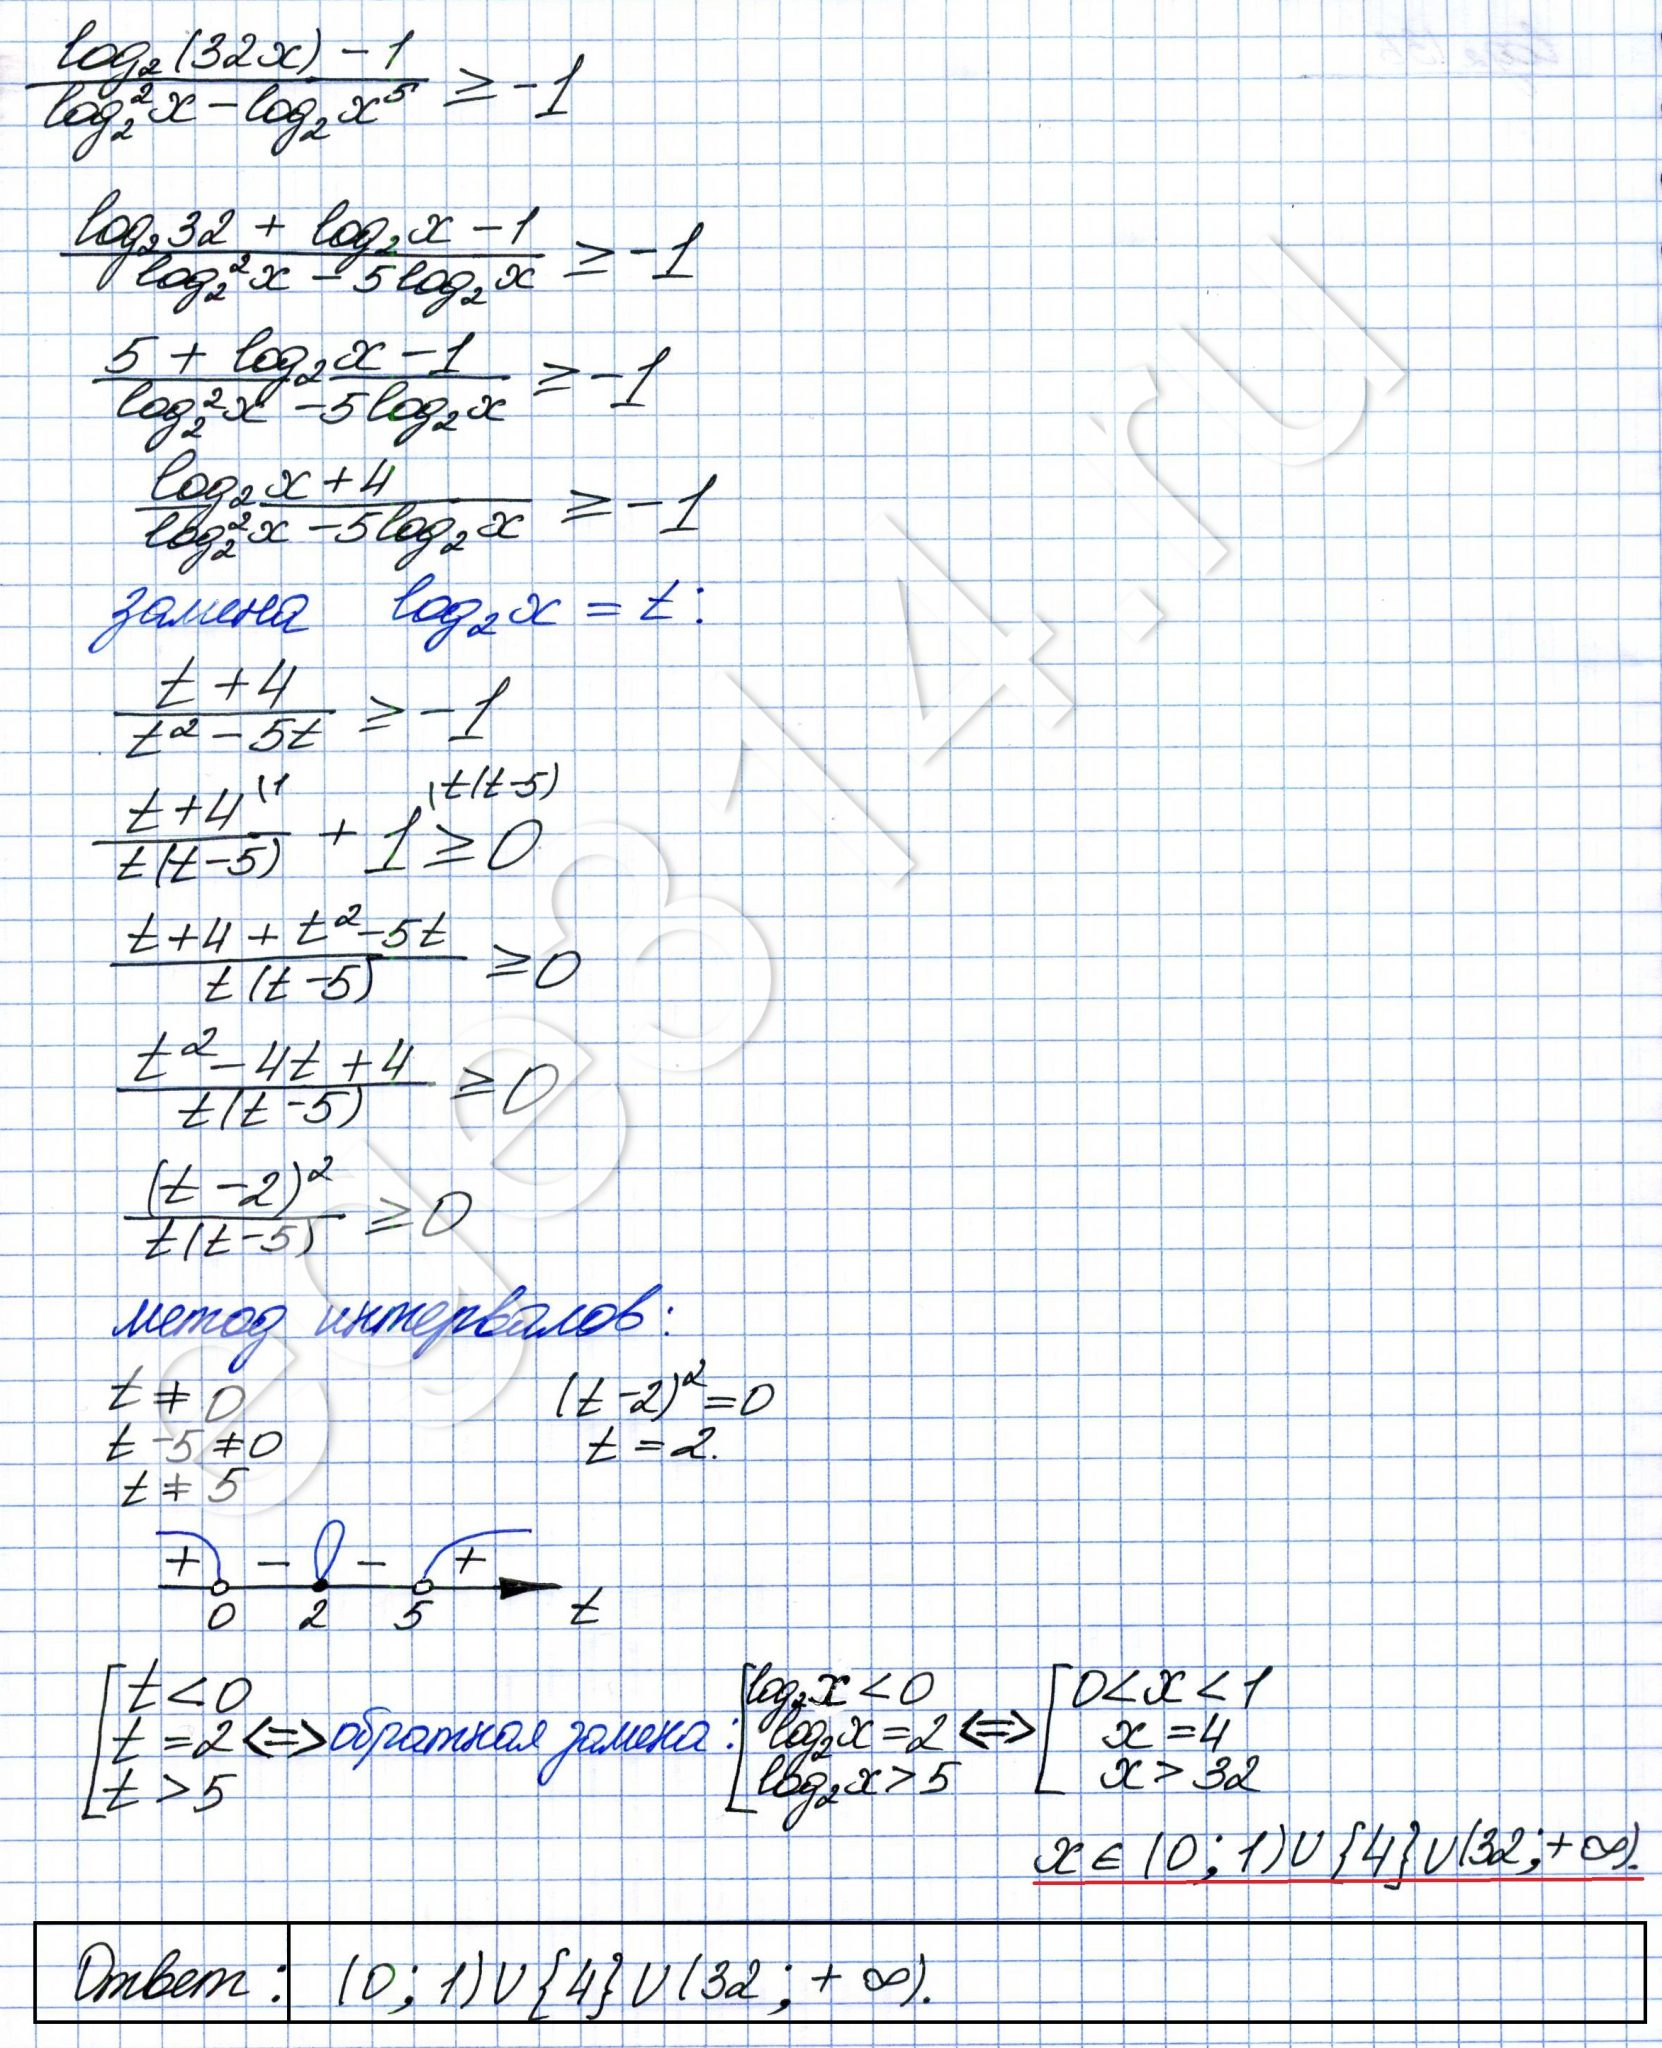 (log₂(32x) − 1)/(log₂²x − log₂x⁵) ≥ −1
(log₂32 + log₂x − 1)/(log₂²x − 5log₂x) ≥ −1
(5 + log₂x − 1)/(log₂²x − 5log₂x) ≥ −1
(log₂x + 4)/(log₂²x − 5log₂x) ≥ −1
замена log₂x = t:
(t + 4)/(t² − 5t) ≥ −1
(t + 4)/(t(t − 5)) ⁽¹ + 1 ⁽ᵗ⁽ᵗ⁻⁵⁾ ≥ 0
(t + 4 + t² − 5t)/(t(t − 5)) ≥ 0
(t² − 4t + 4)/(t(t − 5)) ≥ 0
(t − 2)²/(t(t − 5)) ≥ 0
метод интервалов:
t ≠ 0 (t − 2)² = 0
t − 5 ≠ 0 t = 2.
t ≠ 5
+ − − +
0 2 5 t
[t < 0 [log₂x < 0 [0 < x < 1
t = 2 <=> обратная замена: log₂x = 2 <=> x = 4
t > 5 log₂x > 5 x > 32
x ∈ (0; 1) ∪ {4} ∪ (32; +∞).
Ответ: (0; 1) ∪ {4} ∪ (32; +∞).
ege314.ru